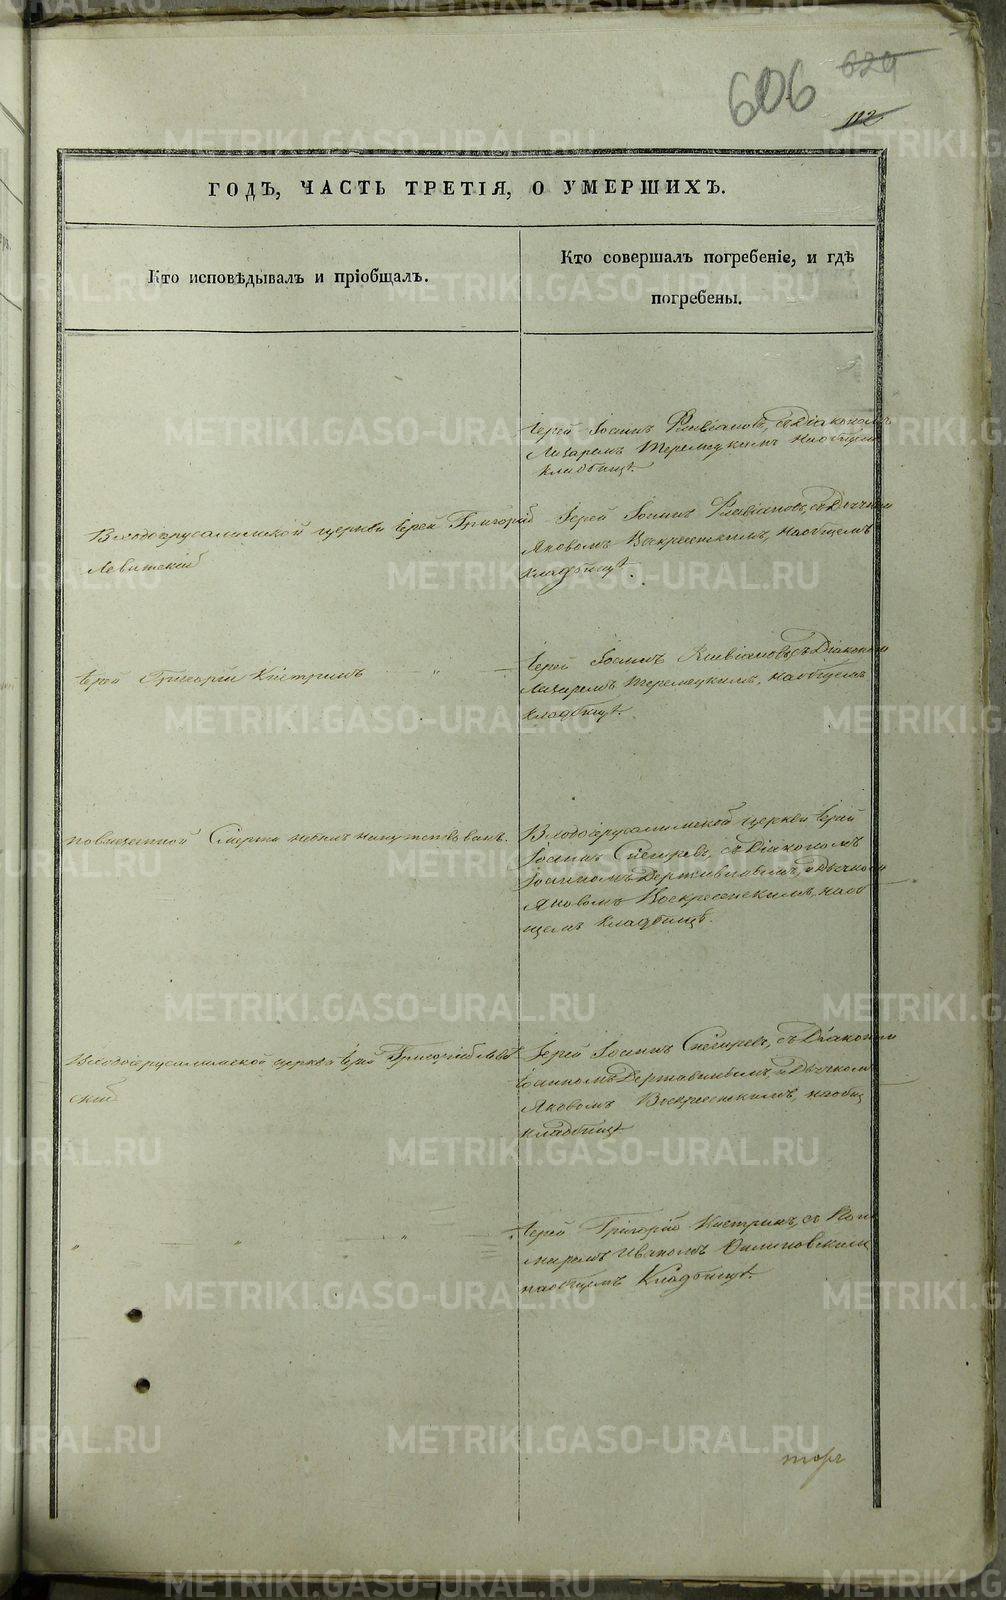 606 629
112
ГОДЪ, ЧАСТЬ ТРЕТІЯ, О УМЕРШИХЪ.
Кто исповѣдывалъ и пріобщалъ.
Кто совершалъ погребеніе, и гдѣ
погребены.
Іерей Іоаннъ Флавіановъ, съ Діакономъ
Лазаремъ Теремецкимъ наобщемъ
кладбищѣ.
Входоіерусалимской церкви Іерей Григорій
Левитскій
Іерей Іоаннъ Флавіановъ, съ Дьячкомъ
Яковомъ Воскресенскимъ, наобщемъ
кладбищѣ.
Іерей Григорій Кистринъ "
Іерей Іоаннъ Флавіановъ, съ Діакономъ
Лазаремъ Теремецкимъ, наобщемъ
кладбищѣ.
Смерти небылъ напутствованъ.
Входоіерусалимской церкви Іерей
Іоаннъ Снѣгиревъ, съ Діакономъ
Іоанномъ Державинымъ, и Дьячкомъ
Яковомъ Воскресенскимъ, наоб
щемъ кладбищѣ.
Входоіерусалимской церкви Іерей Григорій Левит
скій
Іерей Іоаннъ Снѣгиревъ, съ Діакономъ
Іоанномъ Державинымъ, и Дьячкомъ
Яковомъ Воскресенскимъ, наобщ
кладбищѣ
" " "
Іерей Григорій Кистринъ, съ
Иваномъ
наобщемъ Кладбищѣ.
METRIKI.GASO-URAL.RU